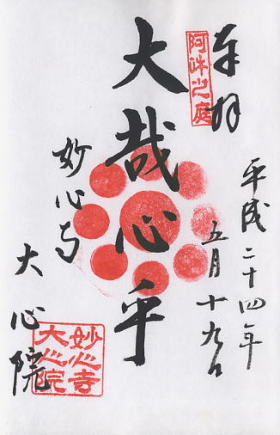 奉拝
阿吽之庭
平成二十四年
五月十九日
大哉心乎
妙心寺
大心院
妙心寺
大心院